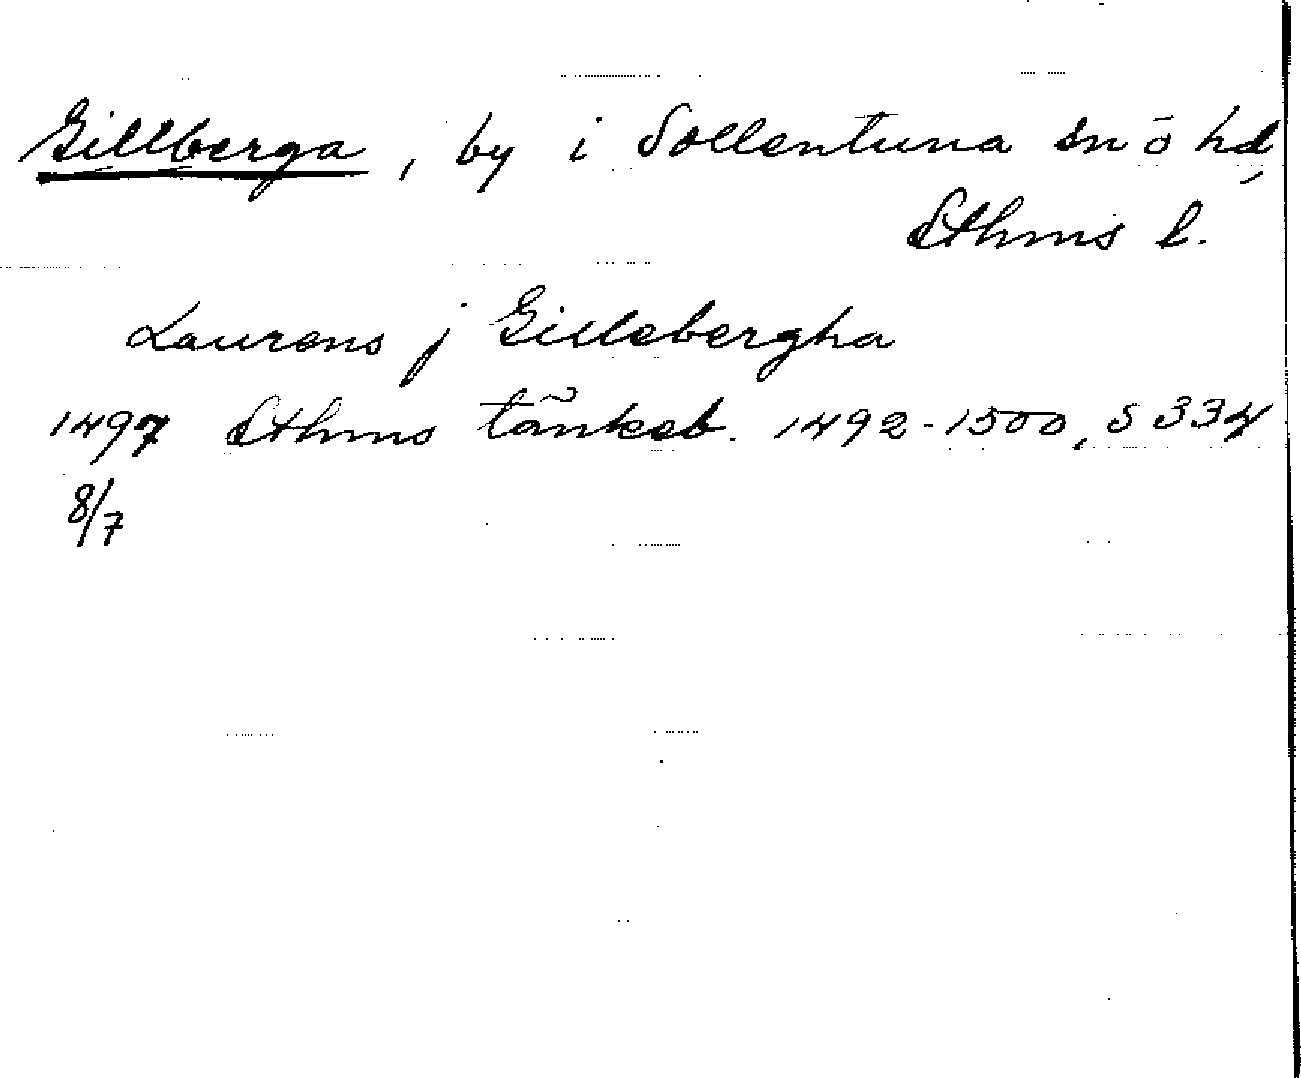 Gillberga, by i Sollentuna sn ō hd,
Sthms l.
Laurens j Gillebergha
1497 Sthms tänkeb. 1492-1500, s 334
8/7